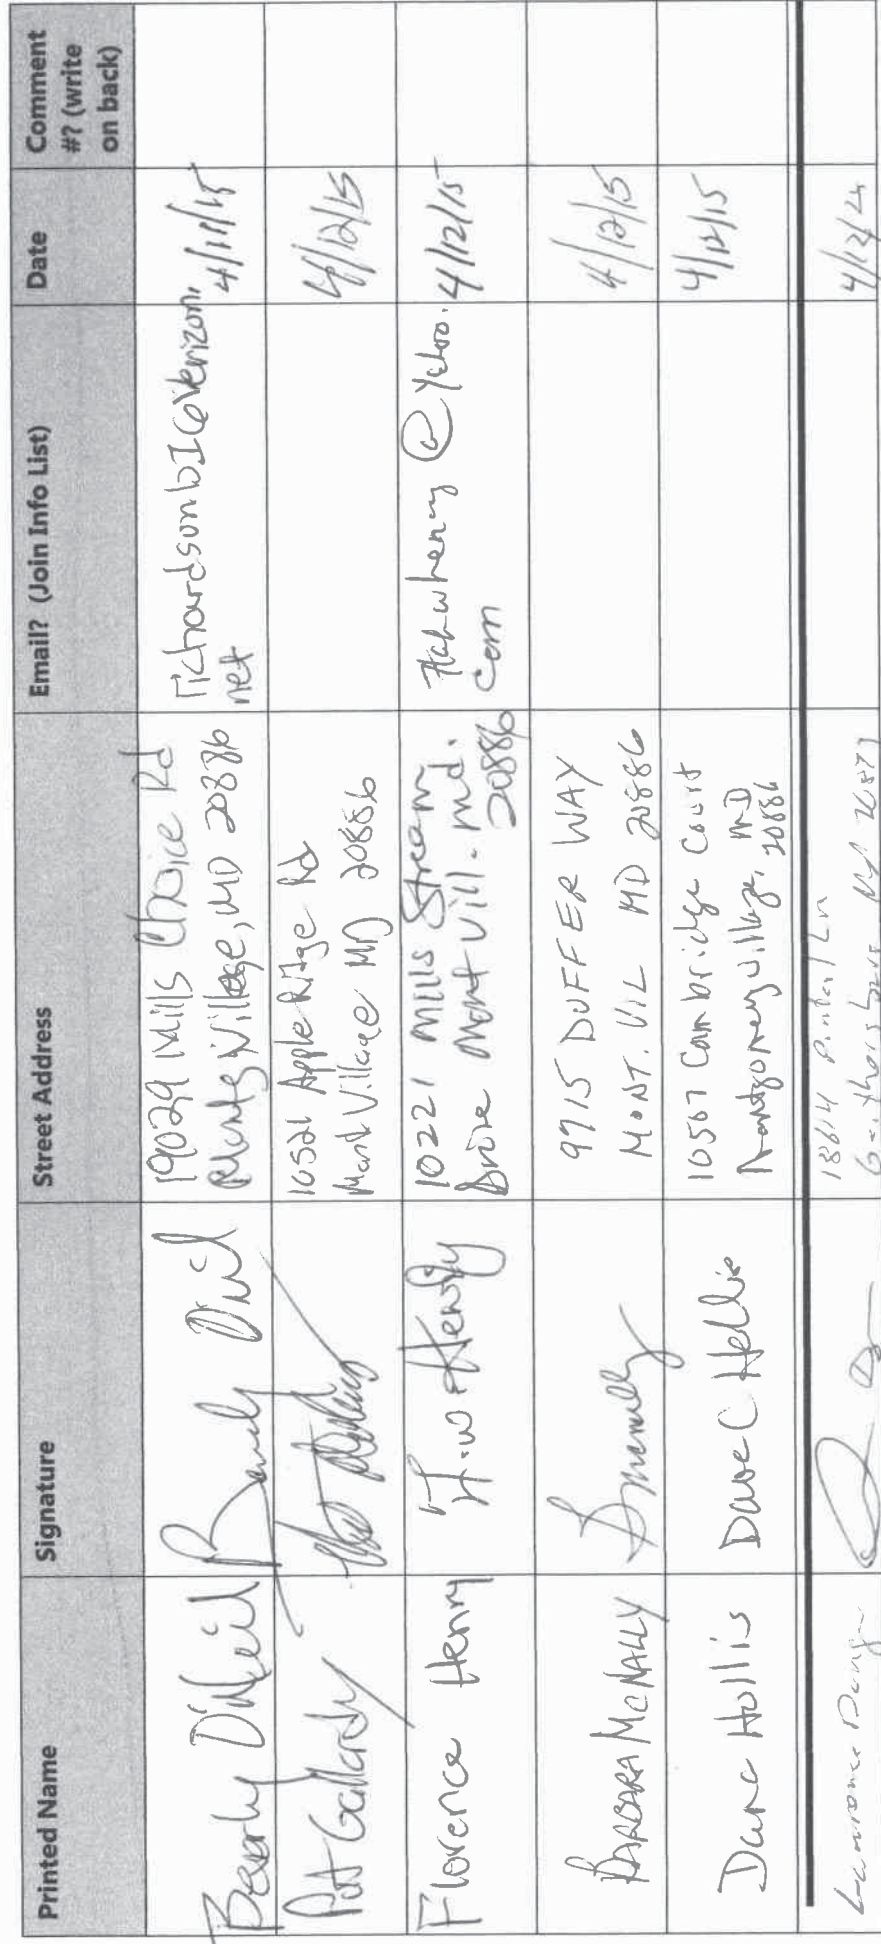 Printed Name
Signature
Street Address
Email? (Join Info List)
Date
Comment
#? (write
on back)
Beverly
19029 Mills Choice Rd
Village, MD 20886
richardsonb1@verizon.
net
4/11/15
Pat Gallardy
10521 Apple Ridge Rd
Mont Village MD 20886
4/12/15
Florence Henry
F.W. Henry
10221 Mills Stream
Drive Mont Vill. md.
20886
@yahoo.
com
4/12/15
BARBARA McNALLY
BMcNally
9715 DUFFER WAY
MONT. VIL MD 20886
4/12/15
Dave Hollis
Dave C Hollis
10507 Cambridge Court
Montgomery Village, MD
20886
4/12/15
Lawrence
18614 Ln